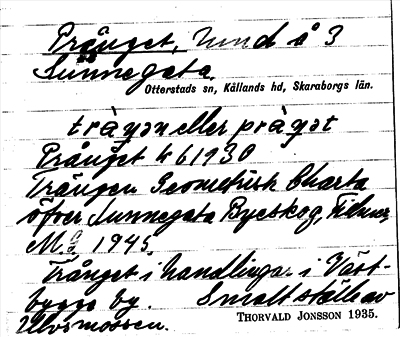 Prånget, hund å 3
Sunnegata.
Otterstads sn, Kållands hd, Skaraborgs län.
tràŋən eller pràŋət
Prånget 461930
Trången Geometrisk Charta
öfver Sunnegata Byeskog,
1945.
Trånget i handlingar i Väst-
bygge by. Smalt ställe av
Ulvsmossen.
THORVALD JONSSON 1935.